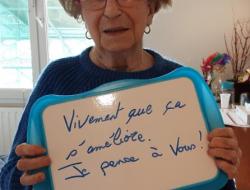 Vivement que ça
s'améliore.
Je pense à Vous!